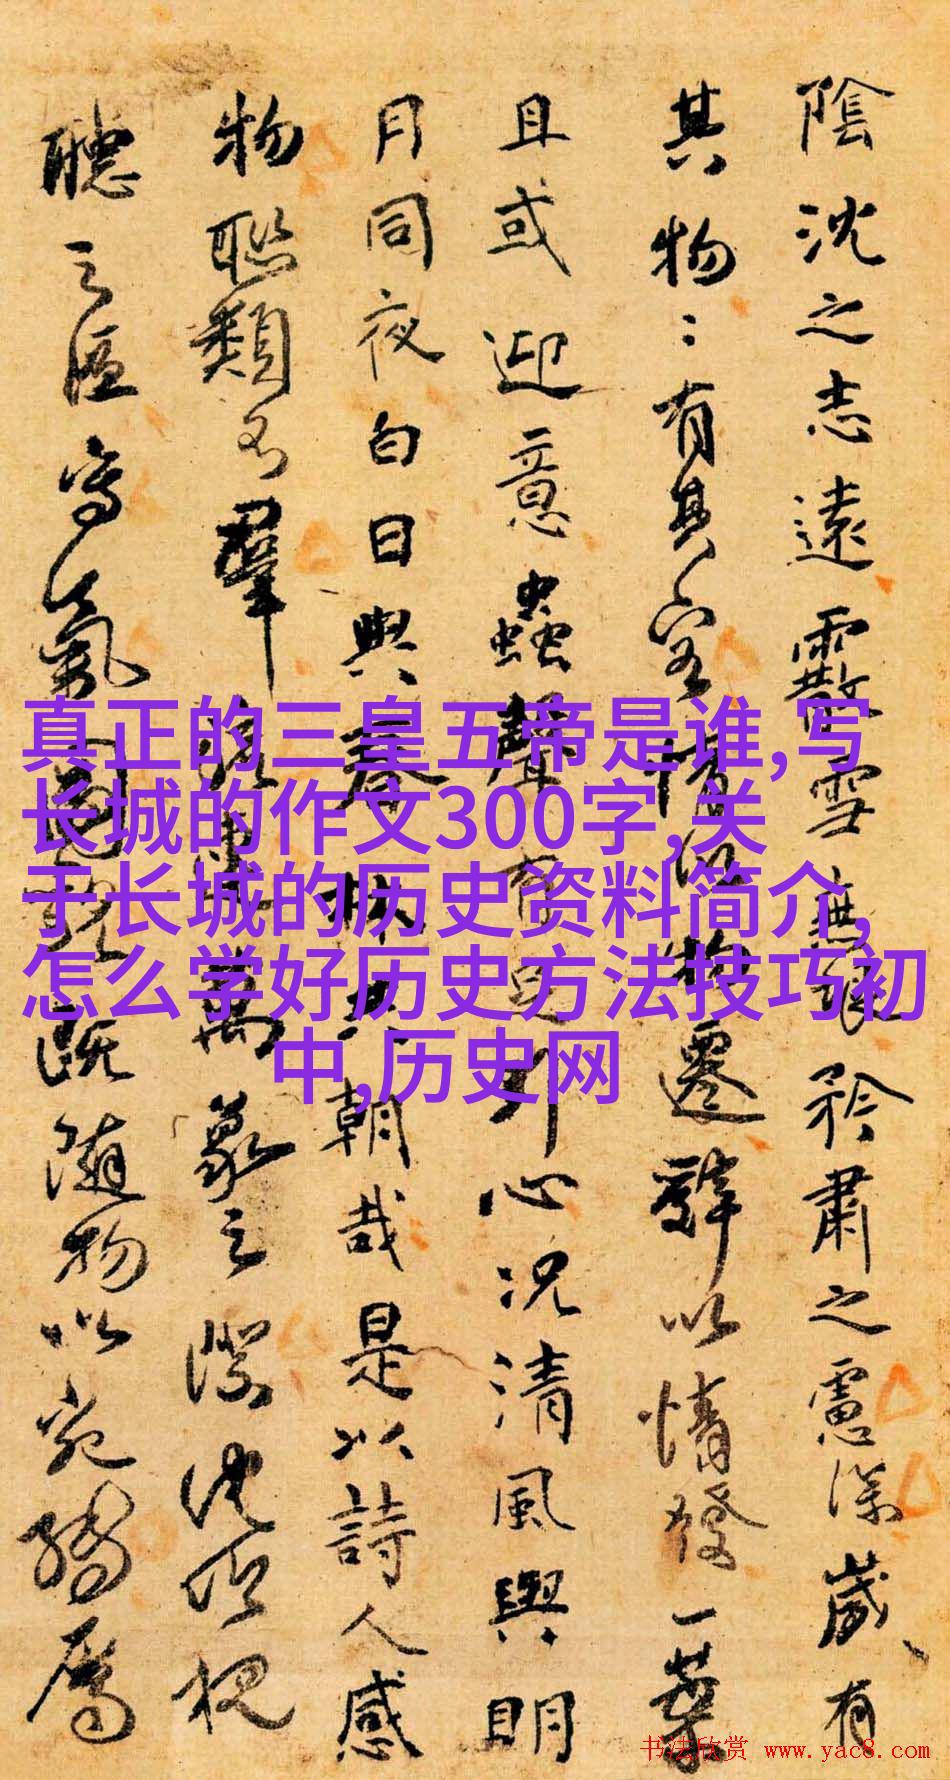 陰沈之志遠霰雪無垠矜肅之慮深歲有
其物物有其容情以物遷辭以情發一葉
且或迎意蟲聲有足引心況清風與明
月同夜白日與春林共朝哉是以詩人感
物聯類不窮流連萬象之際沈吟視
聽之區寫氣圖貌既隨物以宛轉屬
真正的三皇五帝是谁,写
长城的作文300字,关
于长城的历史资料简介,
怎么学好历史方法技巧初
中,历史网
书法欣赏 www.yac8.com